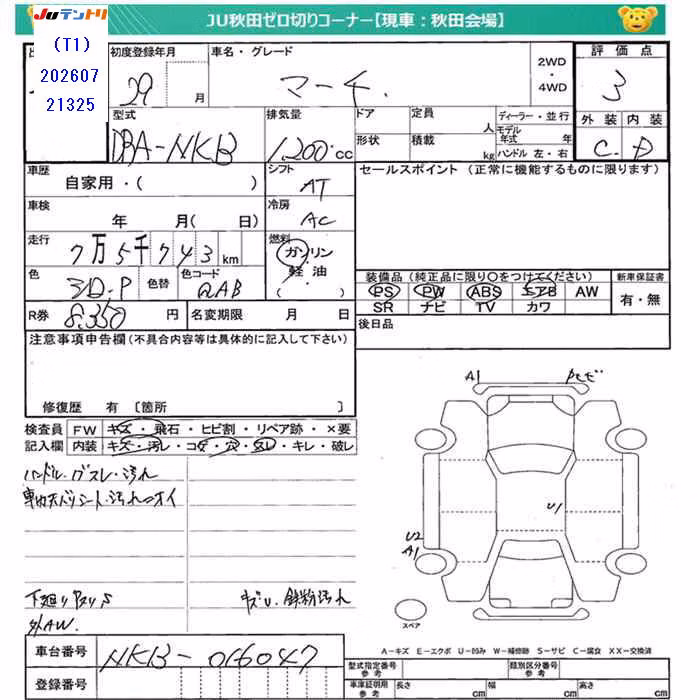 JUテントリ
JU秋田ゼロ切りコーナー【現車：秋田会場】
(T1)
202607
21325
初度登録年月
29 月
車名・グレード
マーチ
2WD
・
4WD
評価点
3
型式
DBA-NKB
排気量
1,200 cc
ドア
定員
人
ディーラー・並行
モデル
年式 年
形状
積載
kg
ハンドル 左・右
外装 内装
C. D
車歴
自家用・( )
シフト
AT
セールスポイント (正常に機能するものに限ります)
車検
年 月( 日)
冷房
AC
走行
7万5千743km
燃料
ガソリン
軽油
( )
色
色替
色コード
QAB
装備品 (純正品に限り○をつけてください)
PS PW ABS エアB AW
SR ナビ TV カワ
新車保証書
有・無
R券
8,350 円
名変期限 月 日
後日品
注意事項申告欄(不具合内容等は具体的に記入して下さい)
修復歴 有 〔箇所 〕
検査員
記入欄
FW キズ・飛石・ヒビ割・リペア跡・×要
内装 キズ・汚レ・コゲ・穴・ヌレ・キレ・破レ
ハンドル・汚れ
下廻りサビS
外AW.
鉄粉汚れ
A1
U1
U2
A1
スペア
A-キズ E-エクボ U-凹み W-補修跡 S-サビ C-腐食 XX-交換済
車台番号
NKB-016047
登録番号
型式指定番号
参考
類別区分番号
参考
車庫証明用
参考
長さ cm
幅 cm
高さ cm